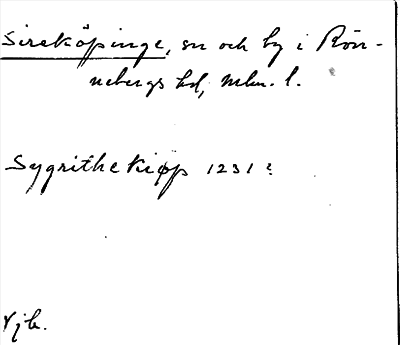 Sireköpinge, sn och by i Rön-
nebergs hd, Mlm. l.
Sygrithekiøp 1231?
Vjb.